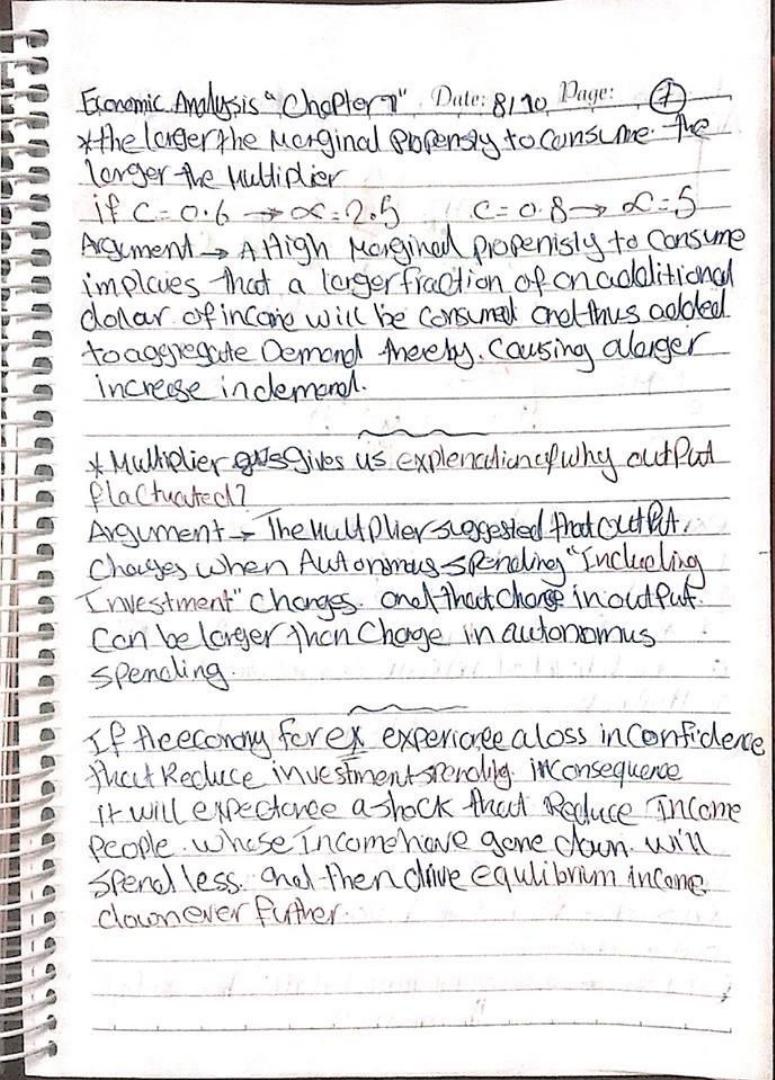 Economic Analysis "Chapter 7" Date: 8/10 Page: 1
*the larger the Marginal Propensity to consume. the
larger the Multiplier
if C=0.6 → ∝=2.5 C=0.8→ ∝=5
Argument → A High Marginal propenisty to Consume
implaies that a larger fraction of an additional
dollar of income will be consumed and thus added
to aggregate Demand thereby. Causing a larger
increase in demand.
* Multiplier gives us explenation of why output
flactuated?
Argument → The Multiplier suggested that output
Changes when Autonomus spending "Including
Investment" Changes. and that Change in output
Can be larger than Change in autonomus
spending.
If the economy for ex experience a loss in Confidence
that Reduce investment spending. in consequence
it will a shock that Reduce Income
People. whose Income have gone down. will
spend less. and then drive equlibrium income
down ever further.